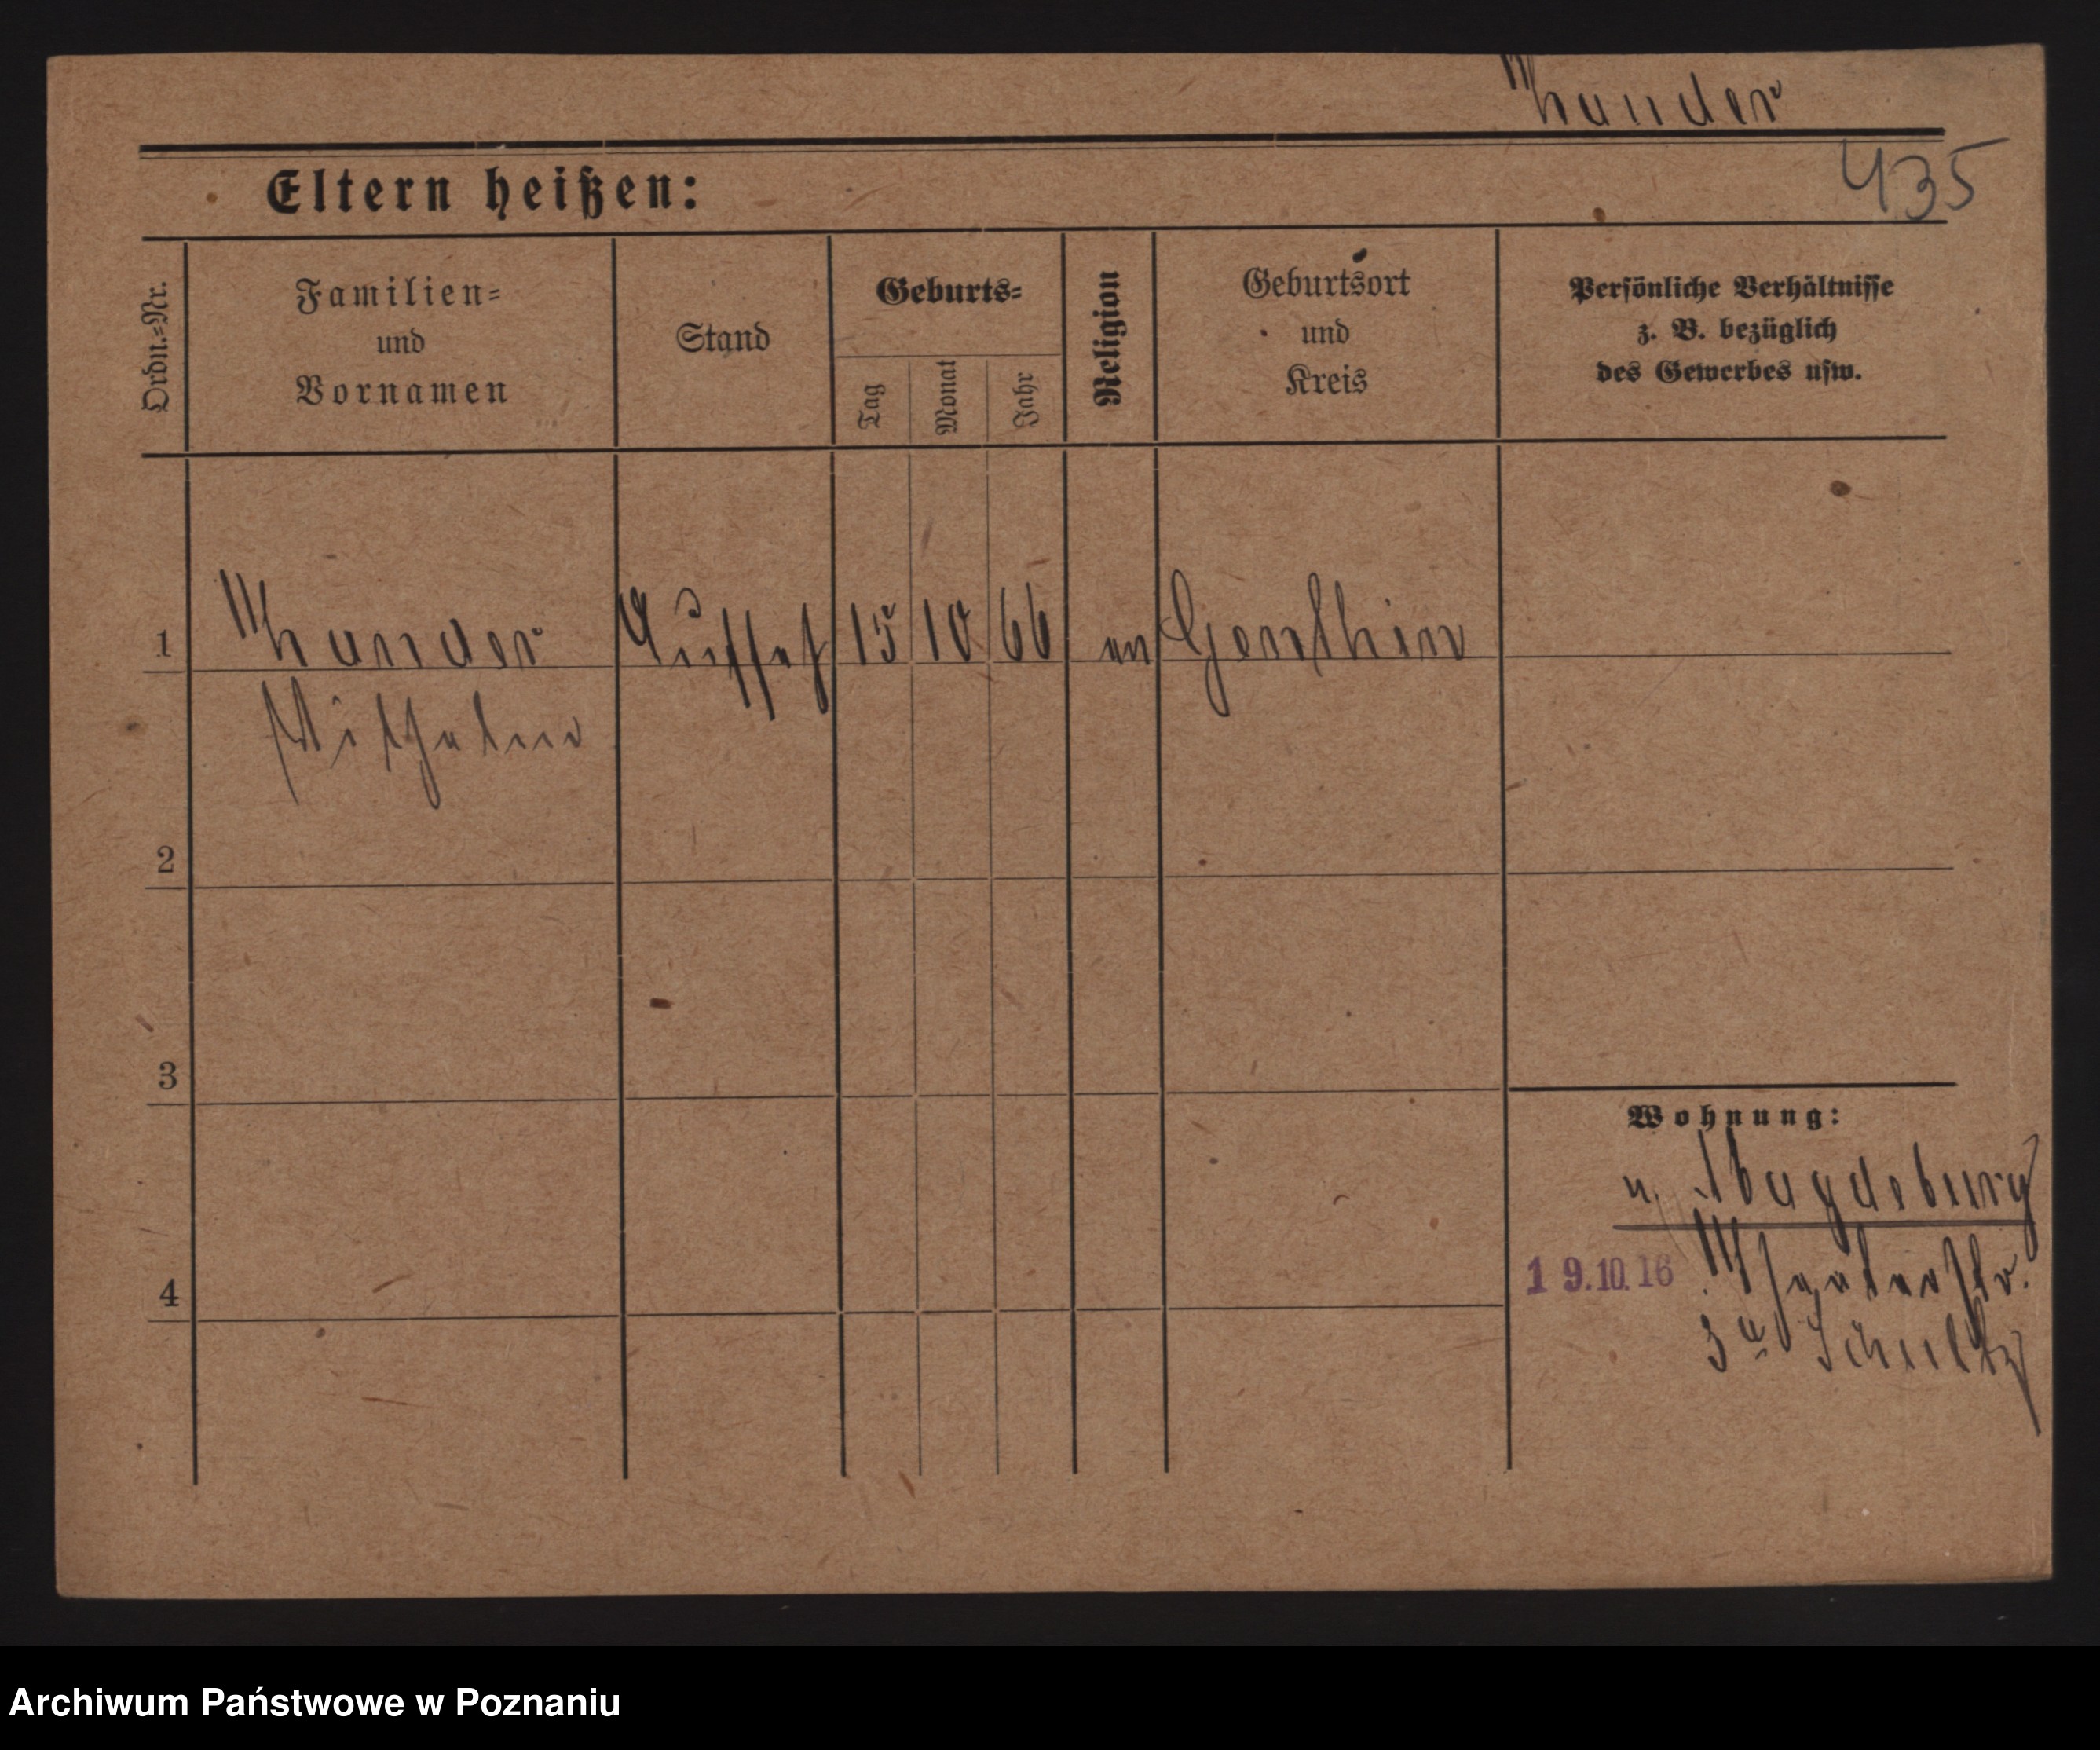 Thunder
435
Eltern heißen:
Ordn.=Nr.
Familien=
und
Vornamen
Stand
Geburts=
Tag
Monat
Jahr
Religion
Geburtsort
und
Kreis
Persönliche Verhältnisse
z. B. bezüglich
des Gewerbes usw.
1 Thunder 15 10 66 Genthin
Wilhelm
2
3
Wohnung:
n. Magdeburg
19.10.16
4
3a Schultz
Archiwum Państwowe w Poznaniu